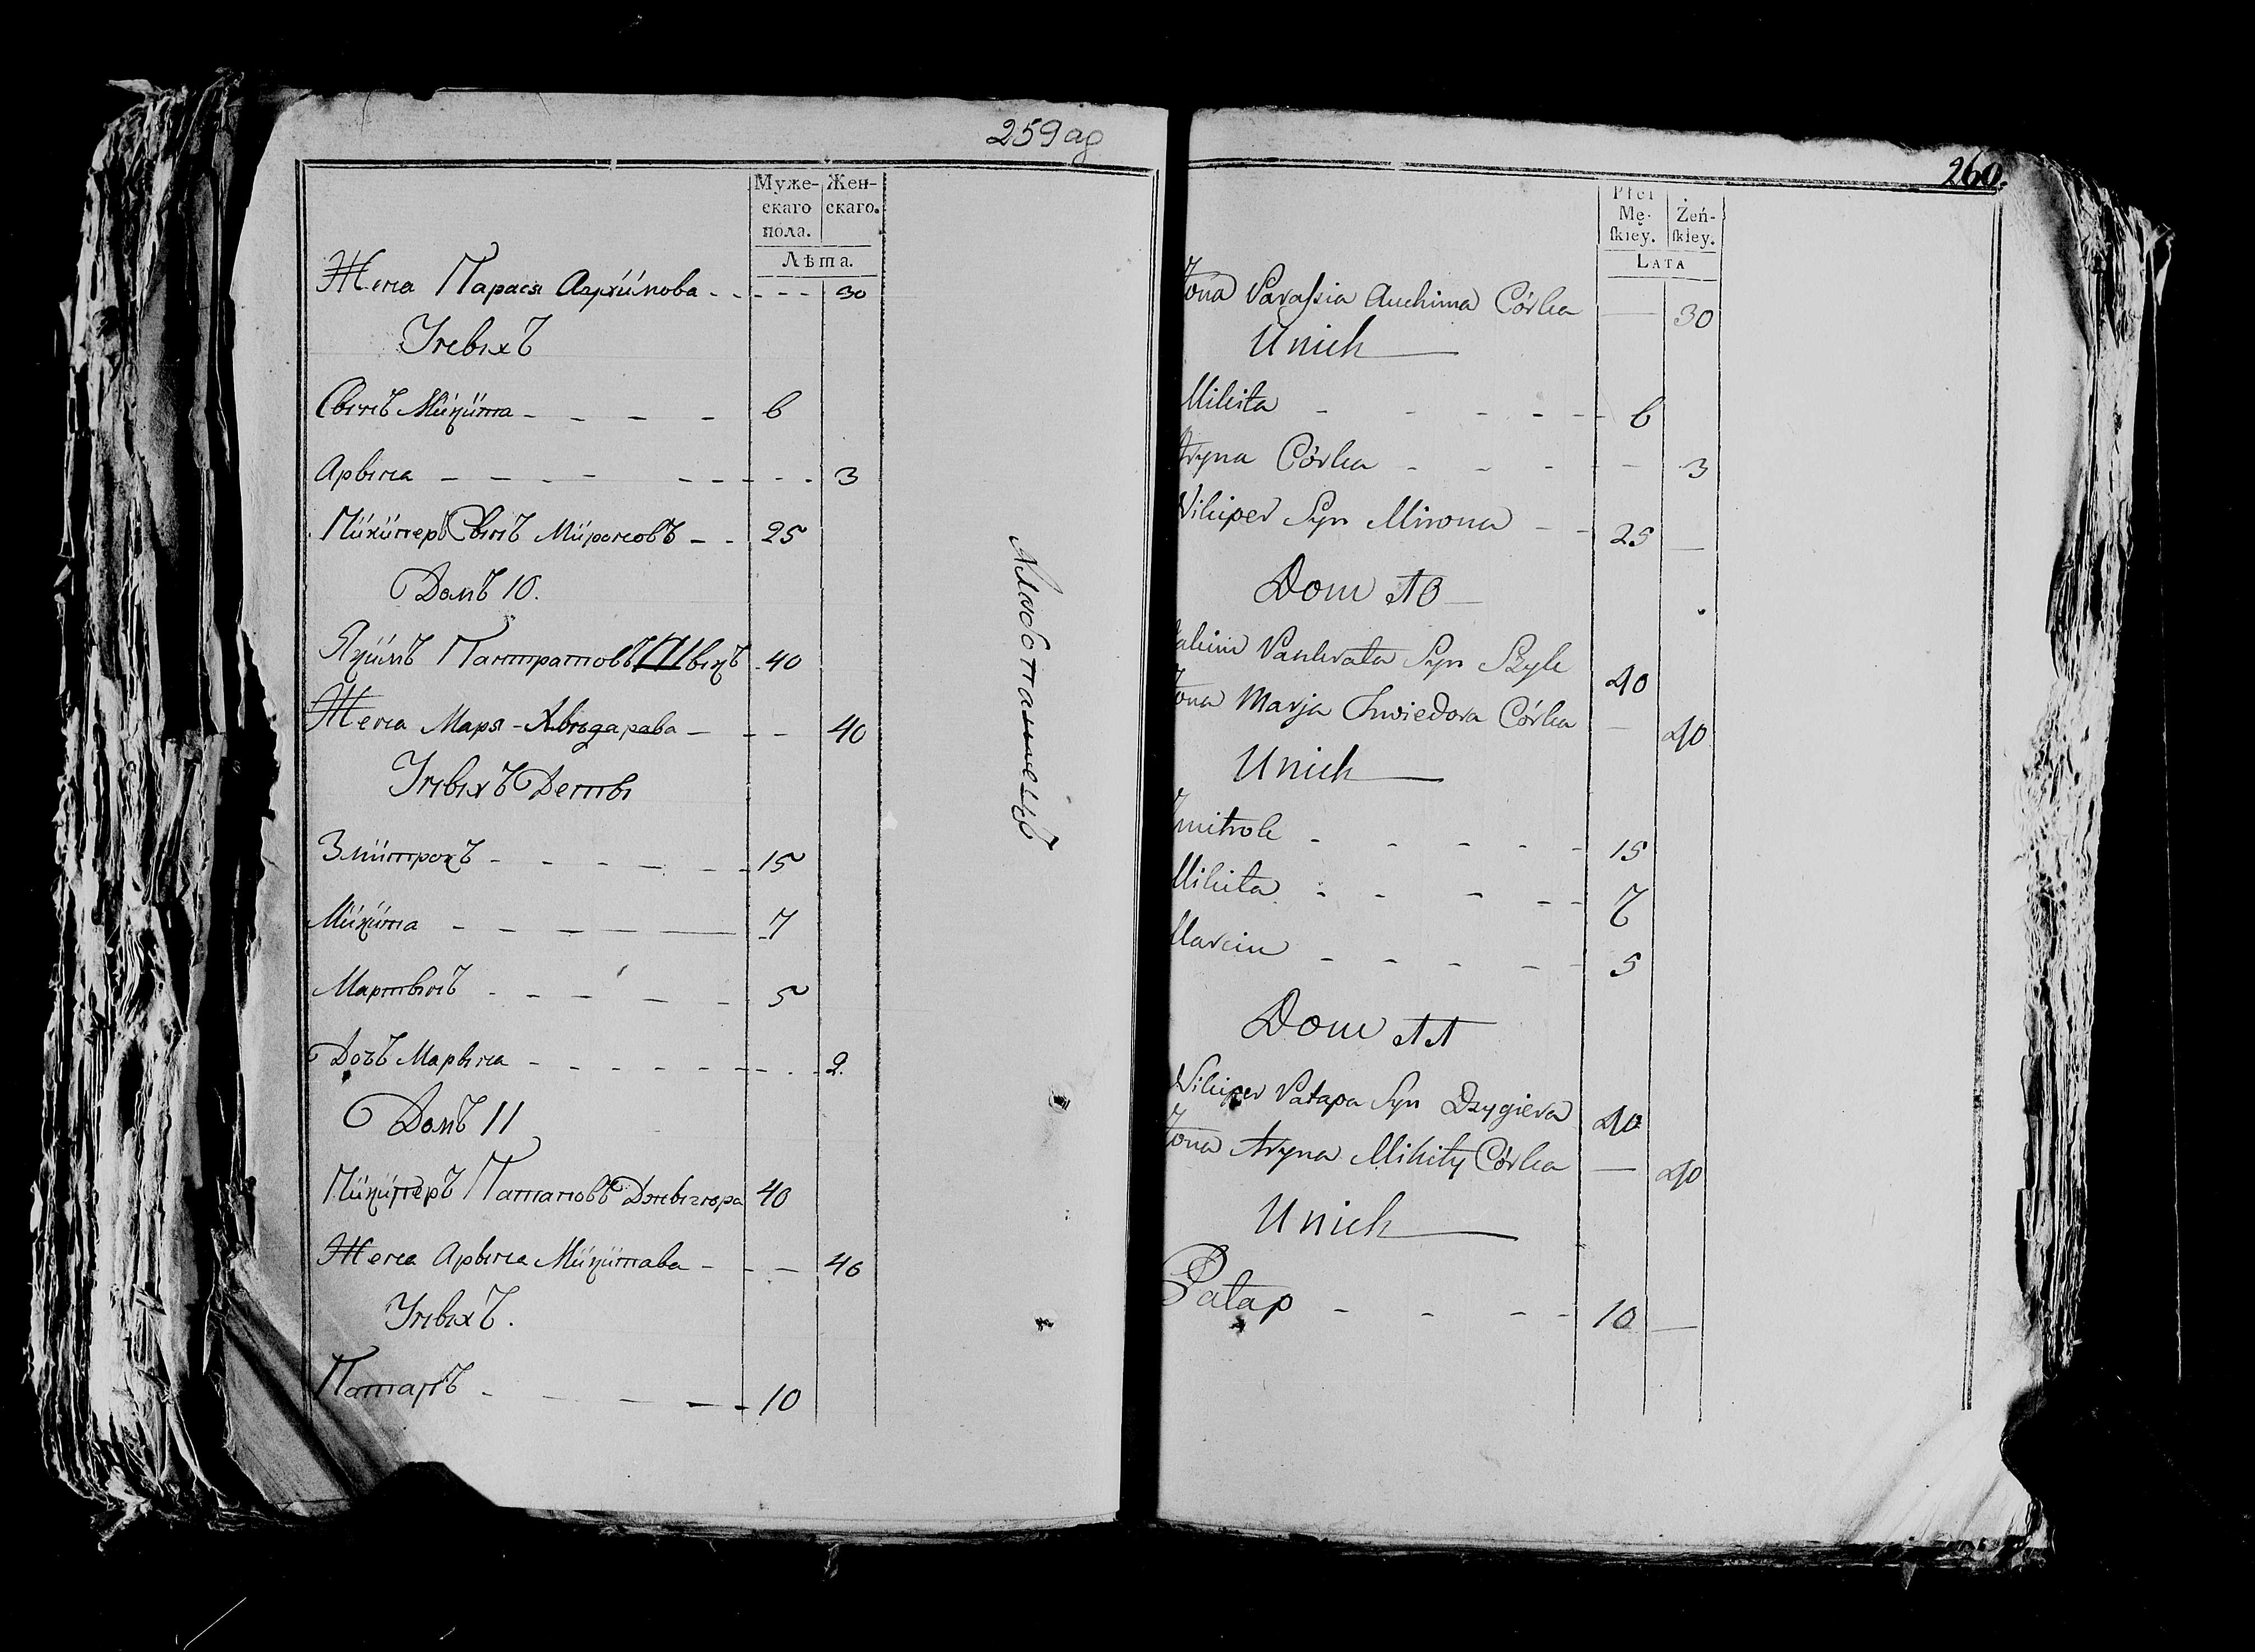 259 ад
Муже- Жен-
скаго скаго.
пола.
Лѣта.
Жена Парася Аэрхимова - - - - - 30
Унивыхъ
Сынъ Микита - - - - 6
Арына - - - - - - - - - 3
Никиперъ Сынъ Мироновъ - - 25
Домъ 10.
Якимъ Пантратовъ Шыкъ 40
Жена Маря Хвѣдарава - - - 40
Унивыхъ Деты
Змитрокъ - - - - - - 15
Микита - - - - - 7
Мартынъ - - - - - 5
Дочъ Марына - - - - - - - - 2.
Домъ 11
Никиперъ Патаповъ Дзывгера 40
Жена Арына Микитава - - - 40
Унивыхъ.
Патапъ - - - - - 10
260.
Płci
Mę- Żeń-
ſkiey. ſkiey.
LATA
Żona Paraſzia Auchima Córka — 30
U nich
Mikita - - - - - - 6
Aryna Córka - - - - - 3
Nikiper Syn Mirona - - 25
Dom 10
Jakim Pankrata Syn Szyk 40
Żona Marja Chwiedora Córka — 40
U nich
Zmitrok - - - - - - 15
Mikita - - - - - 7
Marcin - - - - - - 5
Dom 11
Nikiper Patapa Syn Dzygiera 40
Żona Aryna Mikity Córka — 40
U nich
Patap - - - - 10